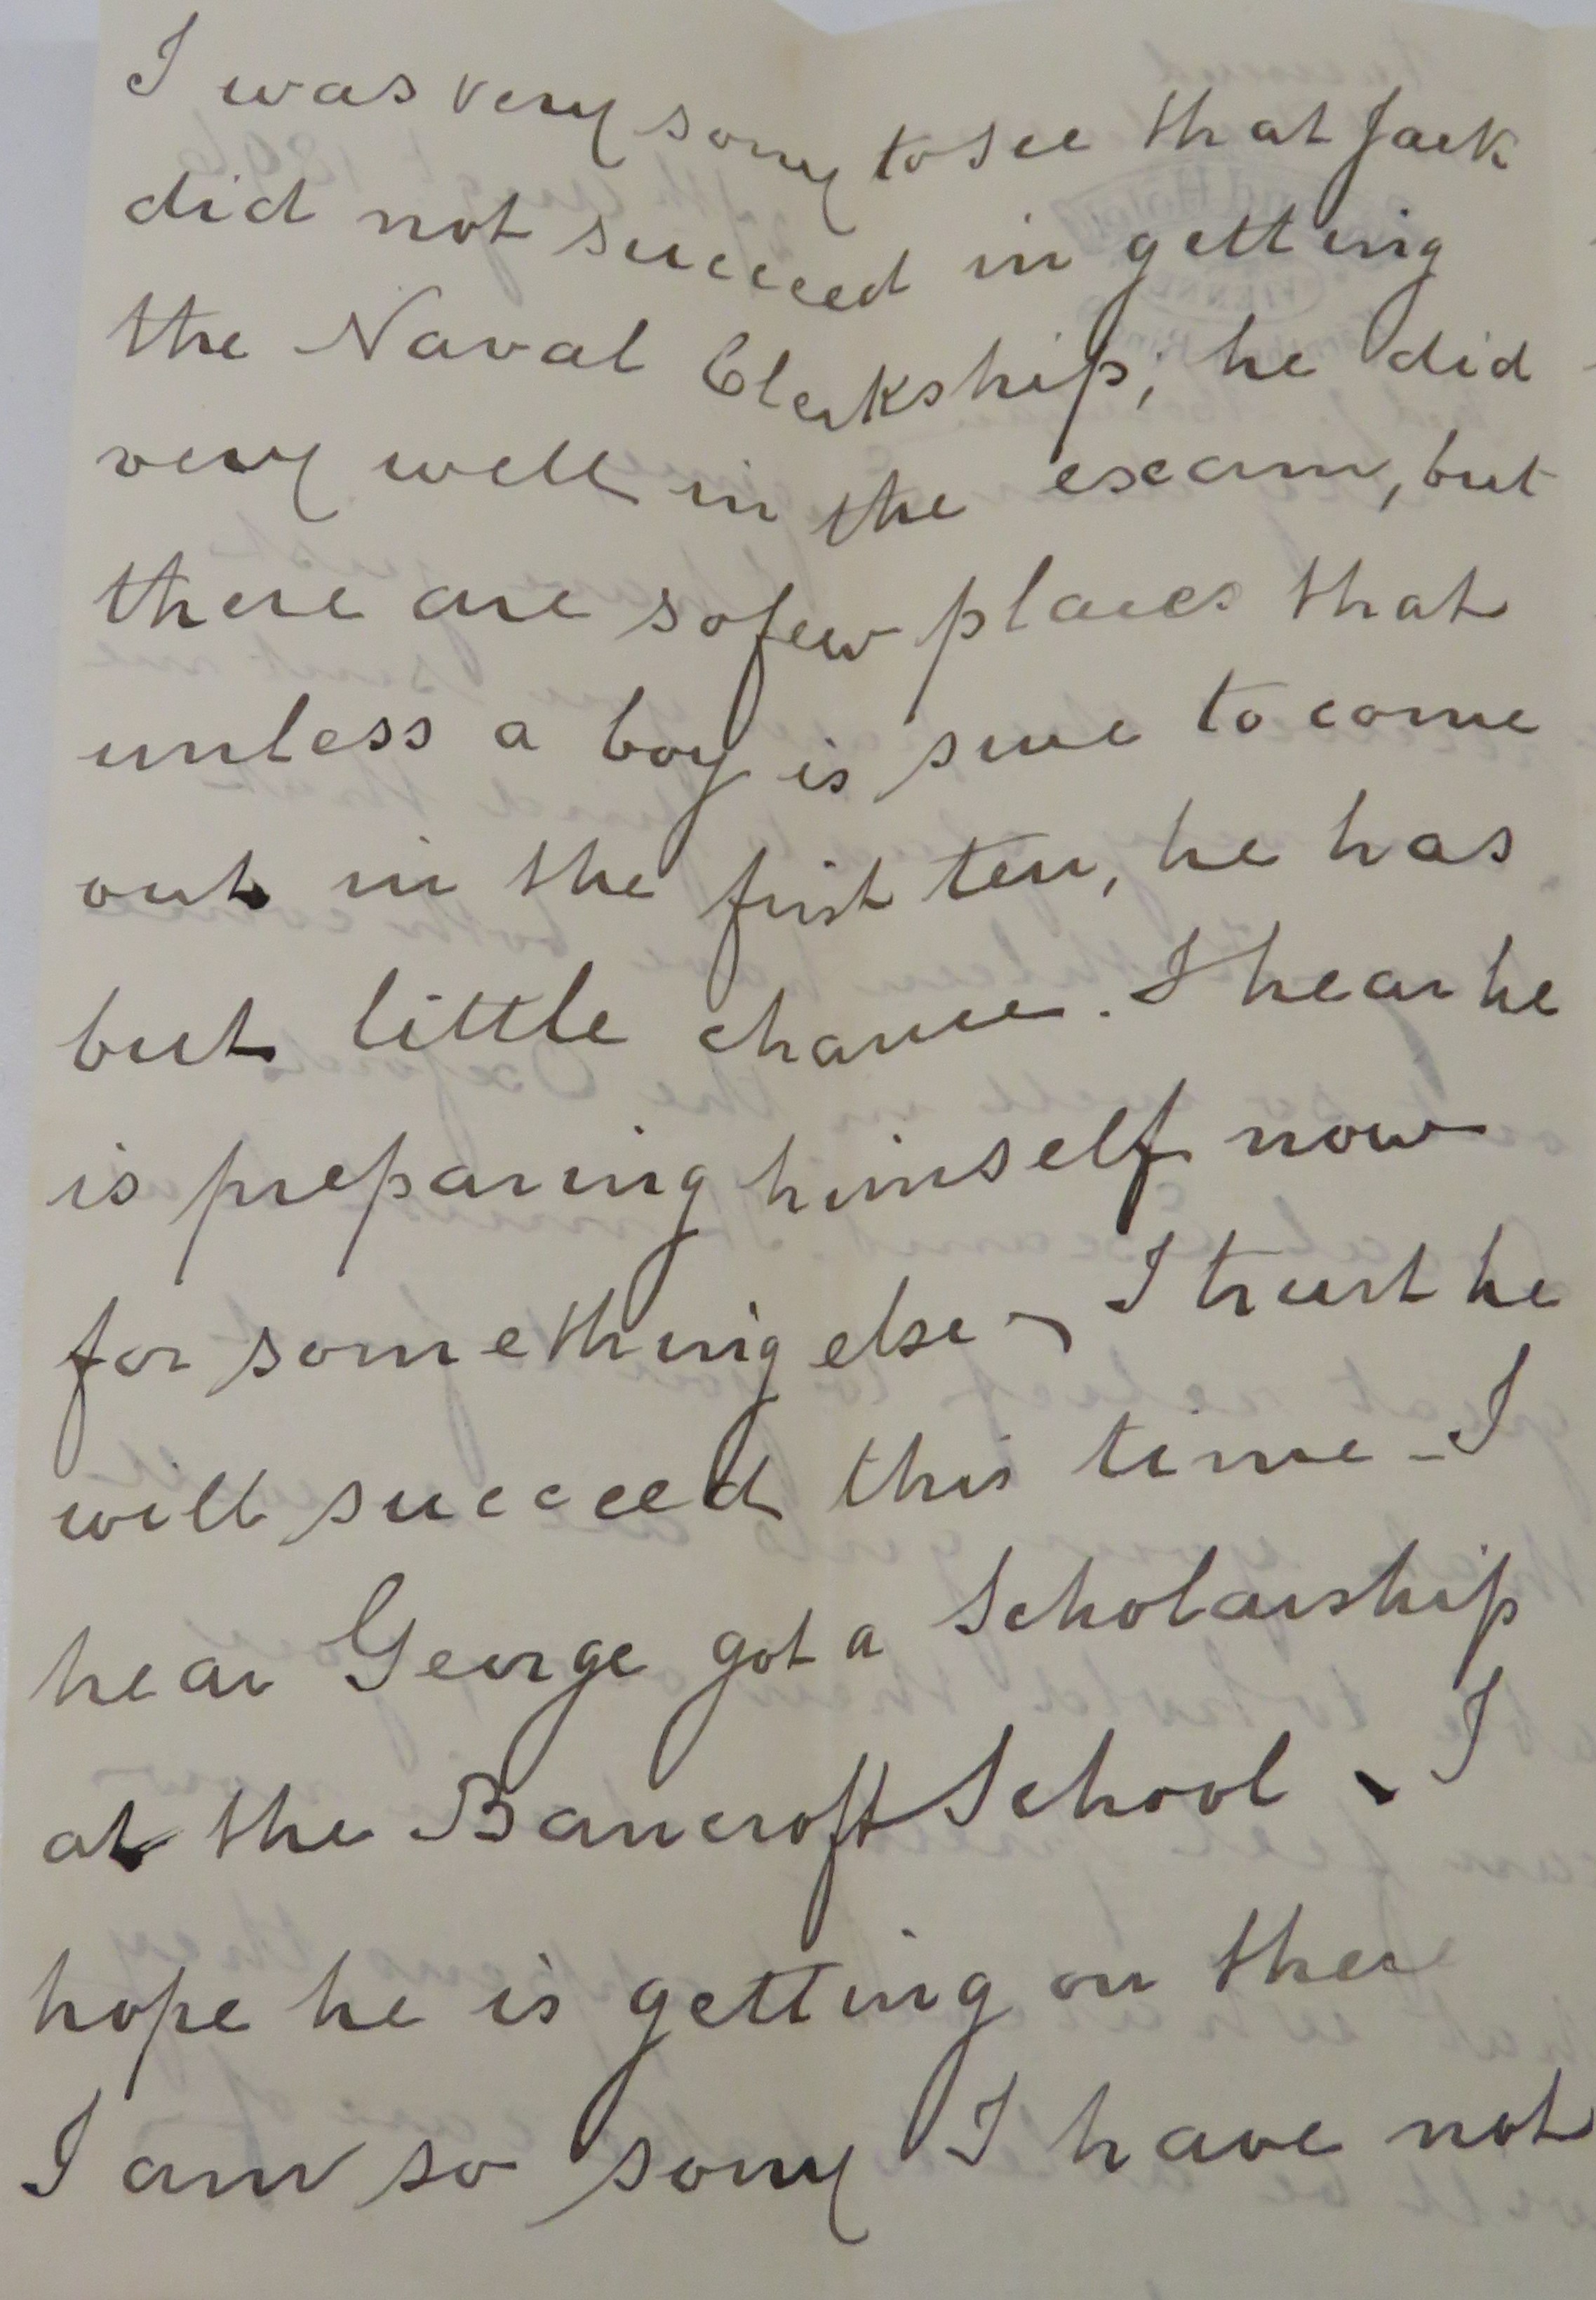 I was very sorry to see that Jack
did not succeed in getting
the Naval Clerkship; he did
very well in the exam, but
there are so few places that
unless a boy is sure to come
out in the first ten, he has
but little chance. I hear he
is preparing himself now
for something else - I trust he
will succeed this time - I
hear George got a Scholarship
at the Bancroft School - I
hope he is getting on there
I am so sorry I have not